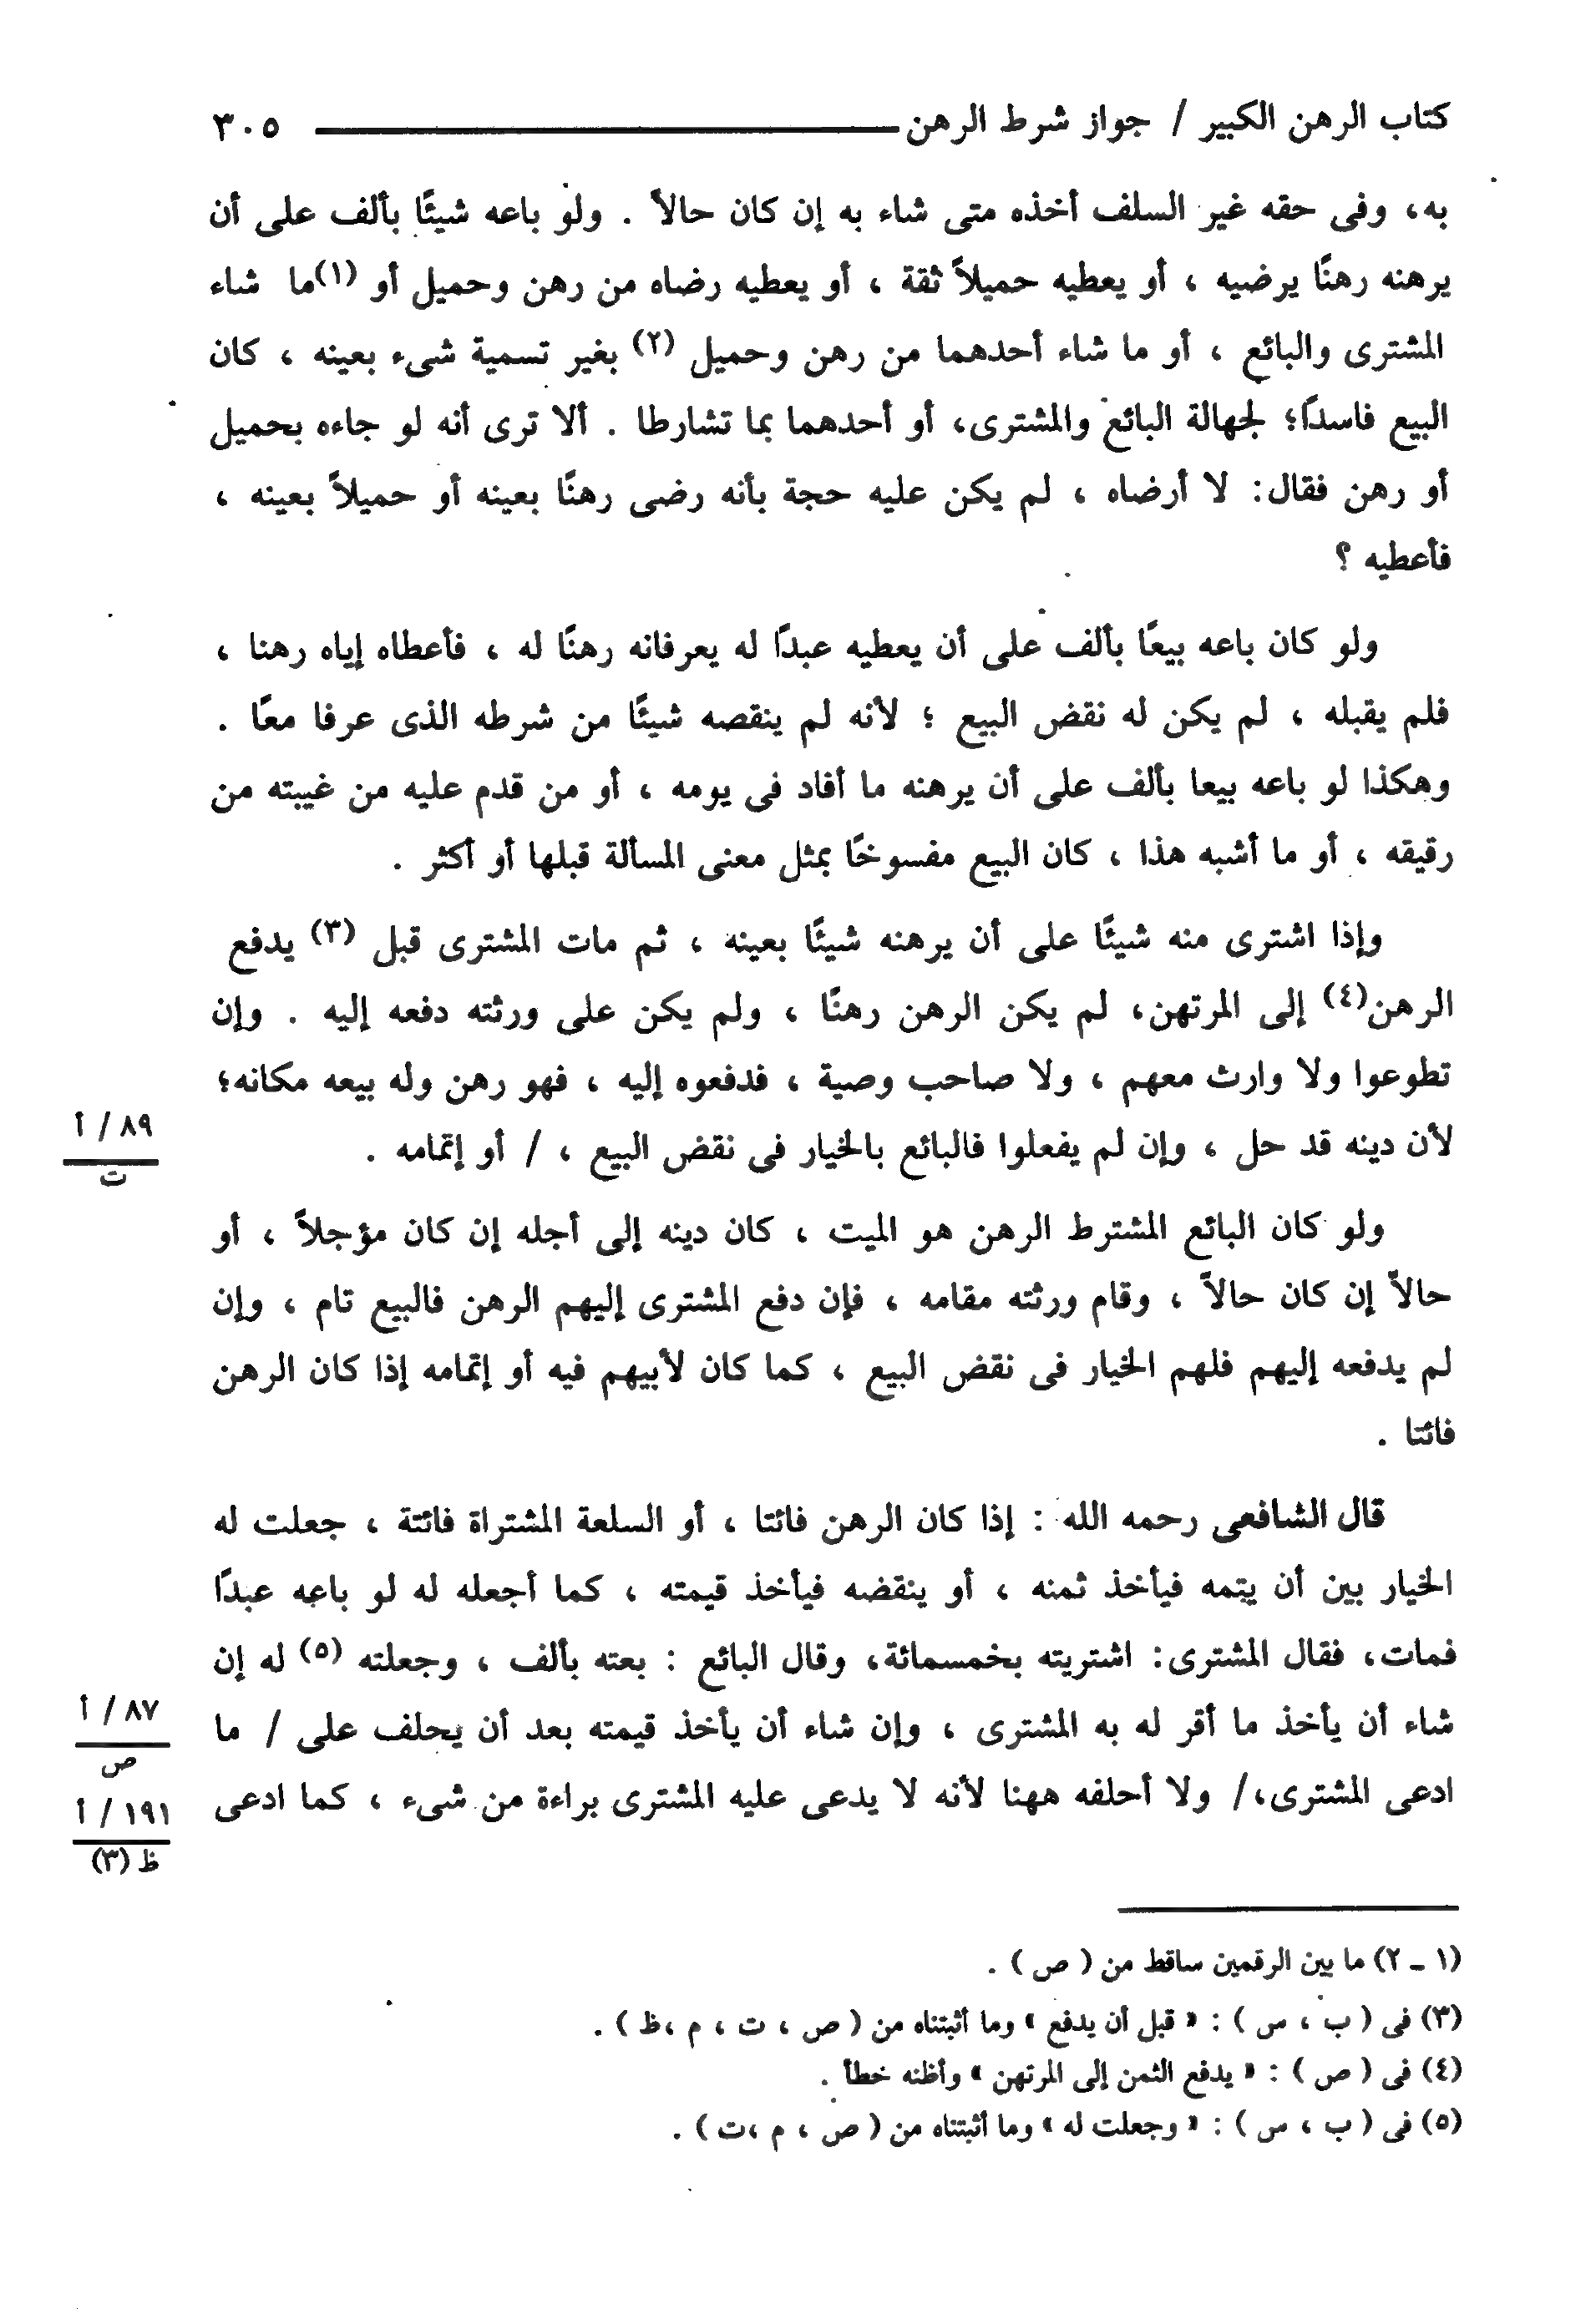 كتاب الرهن الكبير / جواز شرط الرهن ٣٠٥
به، وفى حقه غير السلف أخذه متى شاء به إن كان حالاً . ولو باعه شيئًا بألف على أن
يرهنه رهنًا يرضيه ، أو يعطيه حميلاً ثقة ، أو يعطيه رضاه من رهن وحميل أو (١) ما شاء
المشترى والبائع ، أو ما شاء أحدهما من رهن وحميل (٢) بغير تسمية شىء بعينه ، كان
البيع فاسدًا؛ لجهالة البائع والمشترى، أو أحدهما بما تشارطا . ألا ترى أنه لو جاءه بحميل
أو رهن فقال: لا أرضاه ، لم يكن عليه حجة بأنه رضى رهنًا بعينه أو حميلاً بعينه ،
فأعطيه ؟
ولو كان باعه بيعًا بألف على أن يعطيه عبدًا له يعرفانه رهنًا له ، فأعطاه إياه رهنا ،
فلم يقبله ، لم يكن له نقض البيع ؛ لأنه لم ينقصه شيئًا من شرطه الذى عرفا معًا .
وهكذا لو باعه بيعا بألف على أن يرهنه ما أفاد فى يومه ، أو من قدم عليه من غيبته من
رقيقه ، أو ما أشبه هذا ، كان البيع مفسوخًا بمثل معنى المسألة قبلها أو أكثر .
وإذا اشترى منه شيئًا على أن يرهنه شيئًا بعينه ، ثم مات المشترى قبل (٣) يدفع
الرهن(٤) إلى المرتهن، لم يكن الرهن رهنًا ، ولم يكن على ورثته دفعه إليه . وإن
تطوعوا ولا وارث معهم ، ولا صاحب وصية ، فدفعوه إليه ، فهو رهن وله بيعه مكانه؛
لأن دينه قد حل ، وإن لم يفعلوا فالبائع بالخيار فى نقض البيع ، / أو إتمامه .
٨٩ / أ
ت
ولو كان البائع المشترط الرهن هو الميت ، كان دينه إلى أجله إن كان مؤجلاً ، أو
حالاً إن كان حالاً ، وقام ورثته مقامه ، فإن دفع المشترى إليهم الرهن فالبيع تام ، وإن
لم يدفعه إليهم فلهم الخيار فى نقض البيع ، كما كان لأبيهم فيه أو إتمامه إذا كان الرهن
فائتا .
قال الشافعى رحمه الله : إذا كان الرهن فائتا ، أو السلعة المشتراة فائتة ، جعلت له
الخيار بين أن يتمه فيأخذ ثمنه ، أو ينقضه فيأخذ قيمته ، كما أجعله له لو باعه عبدًا
فمات، فقال المشترى: اشتريته بخمسمائة، وقال البائع : بعته بألف ، وجعلته (٥) له إن
شاء أن يأخذ ما أقر له به المشترى ، وإن شاء أن يأخذ قيمته بعد أن يحلف على / ما
٨٧ / أ
ص
ادعى المشترى،/ ولا أحلفه ههنا لأنه لا يدعى عليه المشترى براءة من شىء ، كما ادعى
١٩١ / أ
ظ (٣)
(١ - ٢) ما بين الرقمين ساقط من ( ص ) .
(٣) فى ( ب ، س ) : « قبل أن يدفع » وما أثبتناه من ( ص ، ت ، م ،ظ ) .
(٤) فى ( ص ) : « يدفع الثمن إلى المرتهن » وأظنه خطأ .
(٥) فى ( ب ، س ) : « وجعلت له » وما أثبتناه من ( ص ، م ،ت ) .